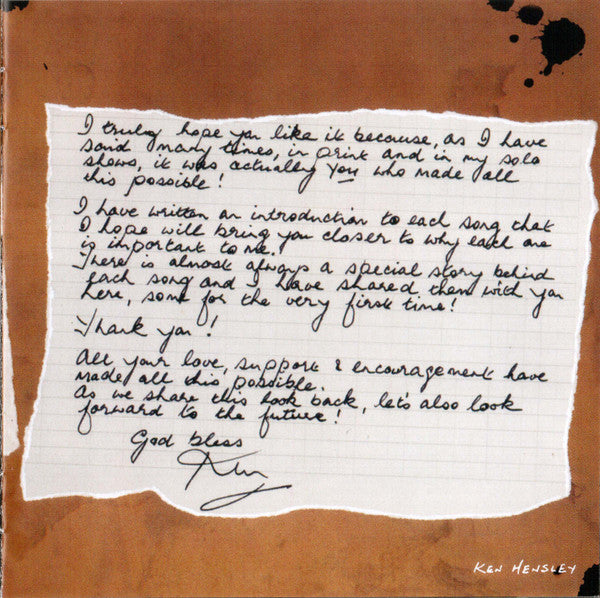 I truly hope you like it because, as I have
said many times, in print and in my solo
shows, it was actually you who made all
this possible!
I have written an introduction to each song that
I hope will bring you closer to why each one
is important to me.
There is almost always a special story behind
each song and I have shared them with you
here, some for the very first time!
Thank you!
All your love, support & encouragement have
made all this possible.
As we share this look back, let's also look
forward to the future!
God bless
Ken
KEN HENSLEY